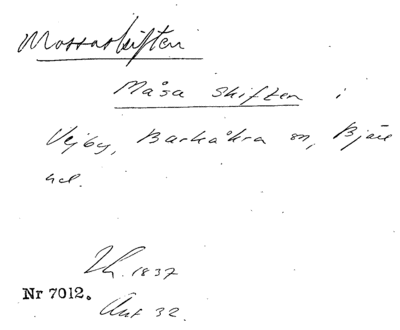 Mossaskiften
Måsa skiften i
Vejby, Barkåkra sn, Bjäre
hd.
1837
Nr 7012.
Ant 32